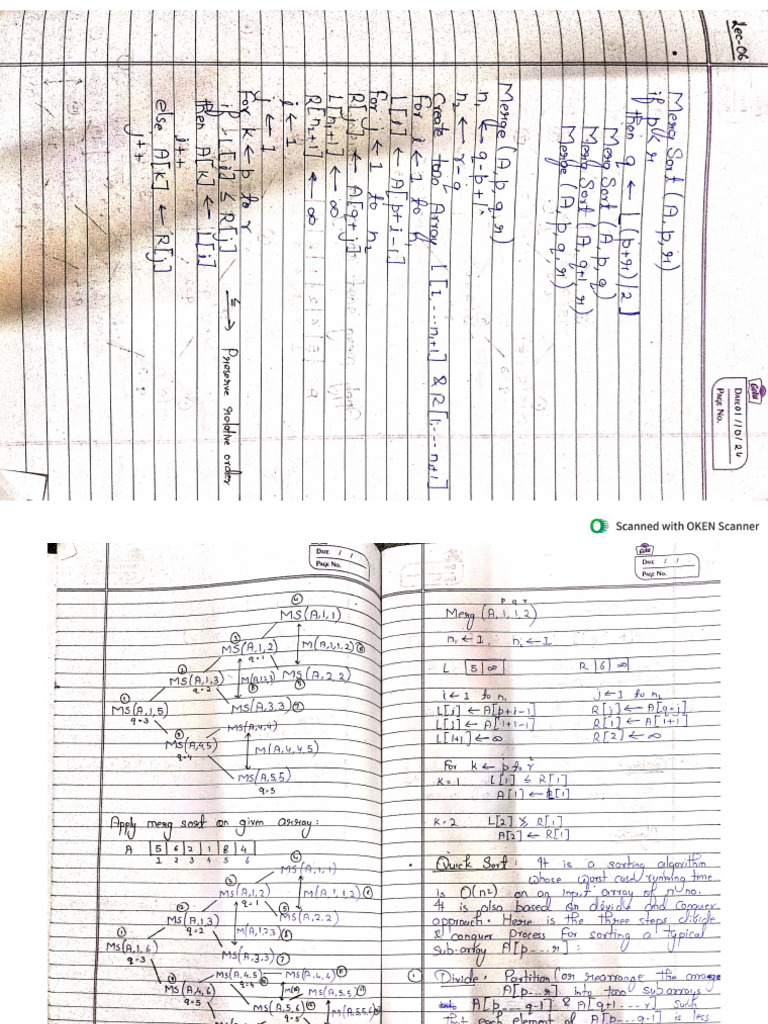 Lec-06
DATE 01/10/24
PAGE No.
Merg Sort (A, p, r)
if p < r
then q ← ⌊(p+r)/2⌋
Merg Sort (A, p, q)
Merg Sort (A, q+1, r)
Merge (A, p, q, r)
Merge (A, p, q, r)
n₁ ← q-p+1
n₂ ← r-q
Create too Array L[1,---n₁+1] & R[1,---n₂+1]
for i ← 1 to
L[i] ← A[p+i-1]
For j ← 1 to n₂
R[j] ← A[q+j]
L[n₁+1] ← ∞
R[n₂+1] ← ∞
i ← 1
j ← 1
For k ← p to r
if L[i] ≤ R[j] ≤ → Preserve relative order
then A[k] ← L[i]
i++
else A[k] ← R[j]
j++
Scanned with OKEN Scanner
DATE / /
PAGE No.
④
MS(A,1,1)
③
MS(A,1,2)
q=1
M(A,1,1,2) ⑥
②
MS(A,1,3)
q=2
MS(A,2,2)
①
MS(A,1,5)
q=3
MS(A,3,3)
MS(A,4,4)
MS(A,4,5)
q=4
M(A,4,4,5)
MS(A,5,5)
q=5
Apply merg sort on given array:
A 5 6 2 1 8 4
1 2 3 4 5 6
④
MS(A,1,1)
③
MS(A,1,2)
q=1
M(A,1,1,2)
②
MS(A,1,3)
q=2
⑤
MS(A,2,2)
①
MS(A,1,6)
q=3
M(A,1,2,3)
MS(A,3,3) ⑦
MS(A,4,5)
q=4
MS(A,4,6)
q=5
MS(A,5,5)
MS(A,5,6)
q=5
DATE / /
PAGE No.
p q r
Merg (A, 1, 1, 2)
n₁ ← 1 n₂ ← 1
L 5 ∞ R 6 ∞
i ← 1 to n₁ j ← 1 to n₂
L[i] ← A[p+i-1] R[j] ← A[q+j]
L[1] ← A[1+1-1] R[1] ← A[1+1]
L[1+1] ← ∞ R[2] ← ∞
For k ← p to r
K=1 L[1] ≤ R[1]
A[1] ← L[1]
K=2 L[2] ≰ R[1]
A[2] ← R[1]
Quick Sort : It is a sorting algorithm
whose worst case running time
is O(n²) on an input array of n no.
It is also based on divide and conquer
approach. Here is the three steps divide
& conquer process for sorting a typical
sub-array A[p---r] :
① Divide: Partition (or rearrange the
A[p---r] into too subarrays
A[p---q-1] & A[q+1---r] such
that each element of A[p---q-1] is less